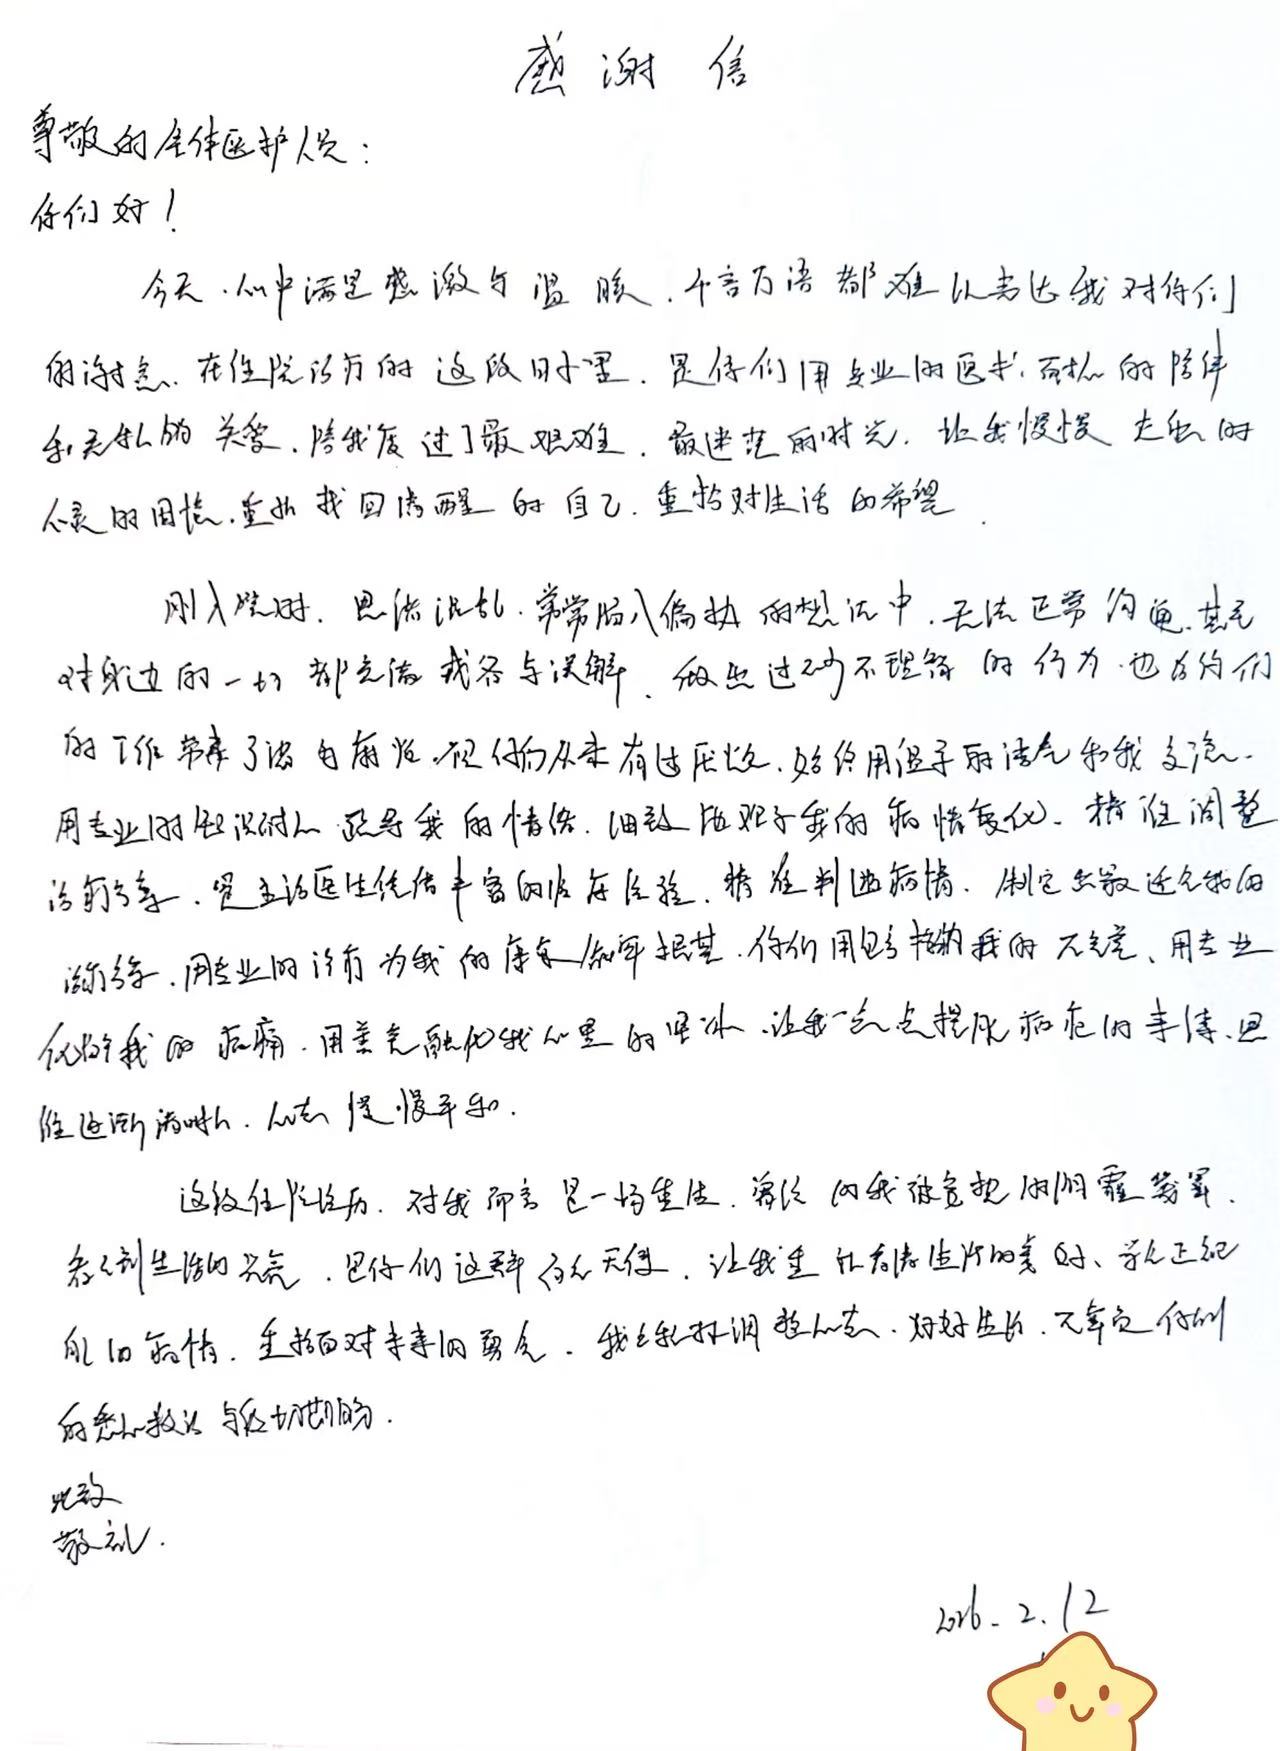 感谢信
尊敬的全体医护人员：
你们好！
今天，心中满是感激与温暖，千言万语都难以表达我对你们
的谢意，在住院治疗的这段日子里，是你们用专业的医术，耐心的陪伴
和无私的关爱，陪我度过了最艰难，最迷茫的时光，让我慢慢走出
的困境，重新找回清醒的自己，重拾对生活的希望
刚入院时，思绪混乱，常常陷入偏执的想法中，无法正常沟通，甚至
对身边的一切都充满戒备与误解，做出过不少不理智的行为，也给你们
的工作带来了诸多麻烦，但你们从未有过厌烦，始终用温柔的语气和我交流，
用专业的知识耐心疏导我的情绪，细致观察我的病情变化，精准调整
治疗方案，是主治医生凭借丰富的临床经验，精准判断病情，制定出最适合我的
治疗方案，用专业的治疗为我的康复筑牢根基，你们用包容接纳我的不完美，用专业
化解我的病痛，用善意融化我心里的坚冰，让我一点点摆脱病症的束缚，思
维逐渐清晰，心态慢慢平和．
这段住院经历，对我而言是一场重生，曾经的我被病魔的阴霾笼罩，
看不到生活的光亮，是你们这群白衣天使，让我重新看清生活的美好、学会正视
自己的病情，重拾面对未来的勇气，我会积极调整心态，好好生活，不辜负你们
的悉心救治与殷切期盼．
此致
敬礼．
2026.2.12